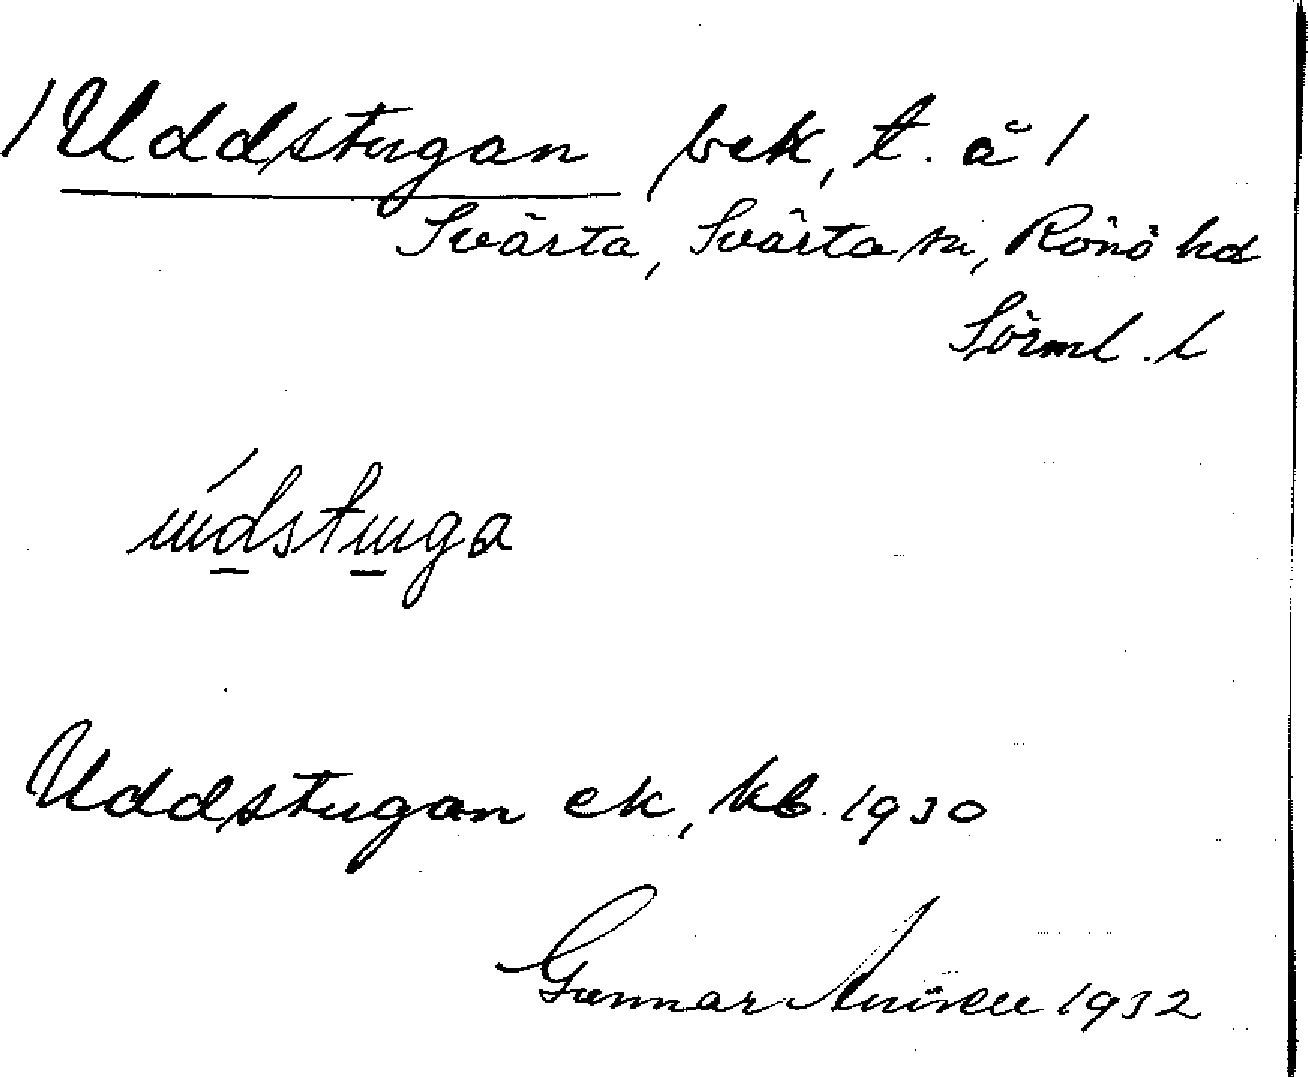 /Uddstugan bek, t. ä /
Svärta, Svärta sn, Rönö hd
Sörml. l
údstuga
Uddstugan ek, kb. 1930
Gunnar 1932